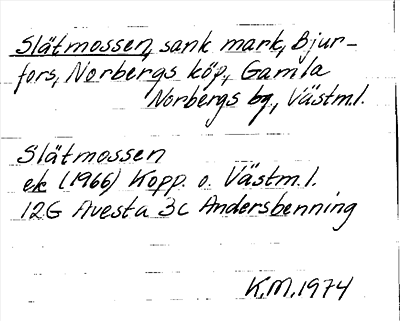 Slätmossen, sank mark, Bjur-
fors, Norbergs köp., Gamla
Norbergs bg, Västml.
Slätmossen
ek (1966) Kopp. o. Västm.l.
12G Avesta 3c Andersbenning
K.M. 1974